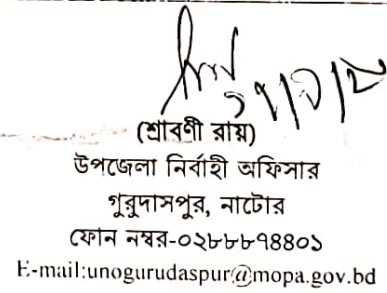 (শ্রাবণী রায়)
উপজেলা নির্বাহী অফিসার
গুরুদাসপুর, নাটোর
ফোন নম্বর-০২৮৮৮৭৪৪০১
E-mail:unogurudaspur@mopa.gov.bd